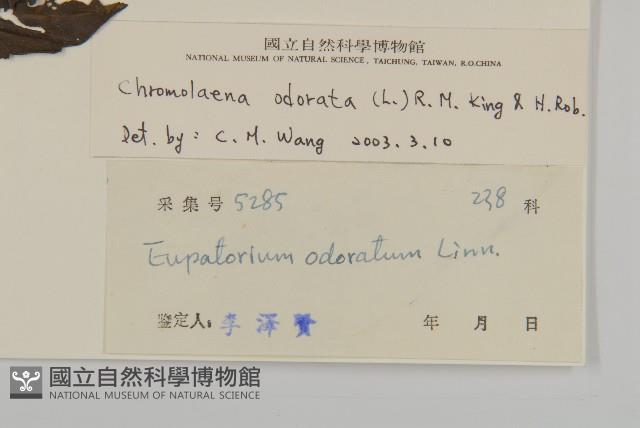 國立自然科學博物館
NATIONAL MUSEUM OF NATURAL SCIENCE, TAICHUNG, TAIWAN, R.O.CHINA
Chromolaena odorata (L.) R. M. King & H. Rob.
Det. by: C. M. Wang 2003. 3. 10
采集号 5285 238 科
Eupatorium odoratum Linn.
鉴定人: 李泽贤 年 月 日
國立自然科學博物館
NATIONAL MUSEUM OF NATURAL SCIENCE